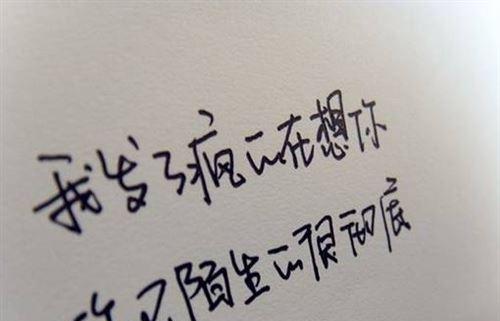 我发了疯一在想你
你又陌生一很彻底